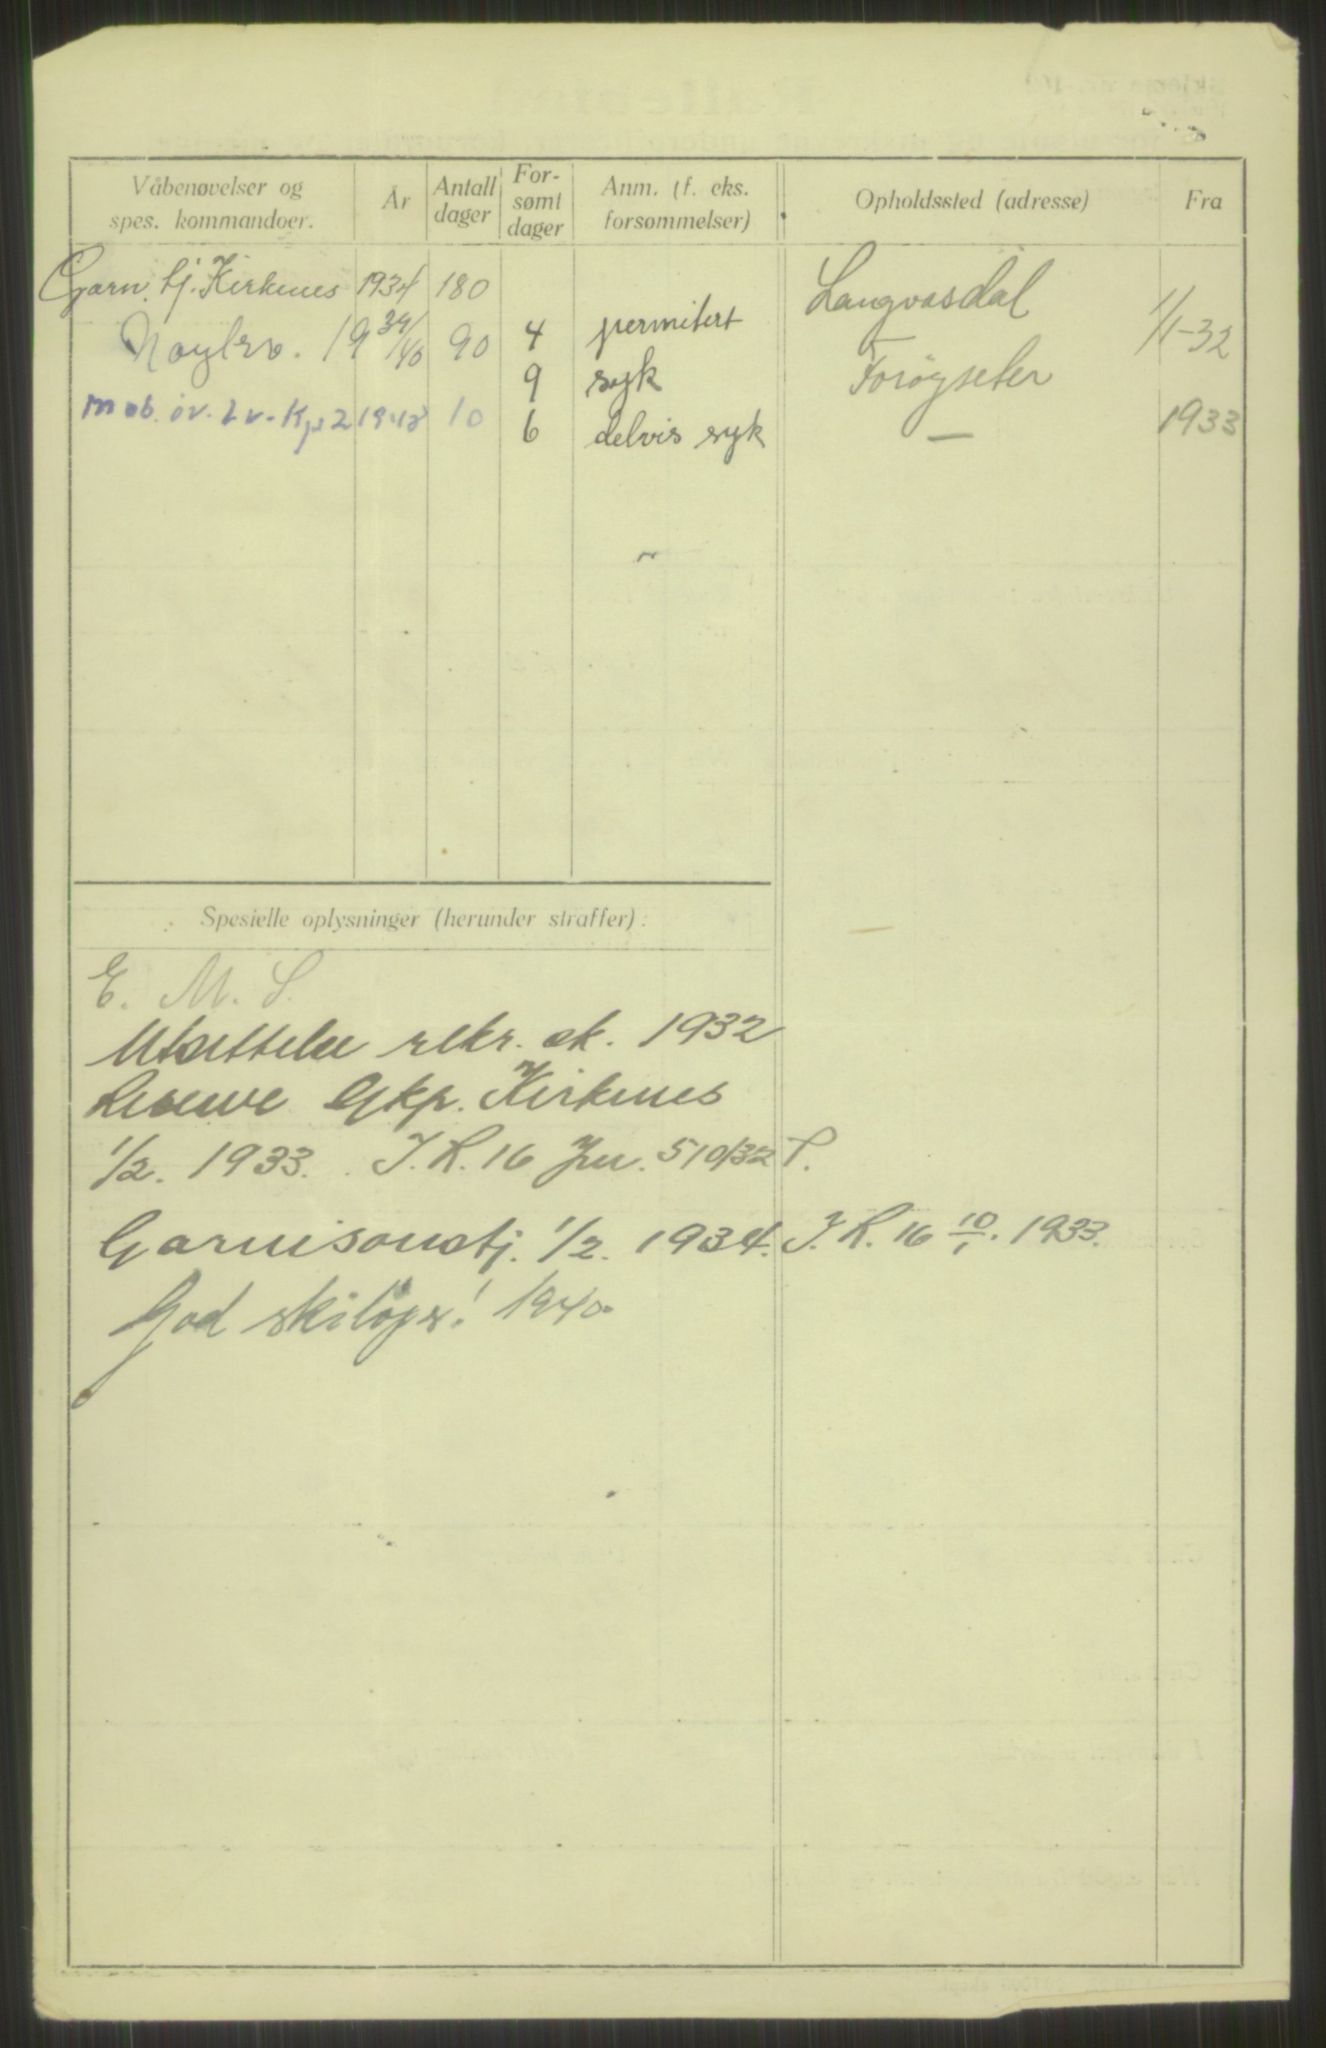 Våbenøvelser og spes. kommandoer.
År
Antall dager
For- sømt dager
Anm. (f. eks. forsømmelser)
Opholdssted (adresse)
Fra
Garn. tj. Kirkenes 1934 180
Nøytrv. 1939/40 90
Mob. öv. Lv. Kp 2 10
4 permitert
9 syk
6 delvis syk
Langvasdal 1/1-32
—
1933
Spesielle oplysninger (herunder straffer):
E. M. S.
Utsettelse rekr. sk. 1932
Gkp. Kirkenes
1/2. 1933. I.R. 16 Jnr. 510/32 P.
Garnisonstj. 1/2. 1934. I.R. 16 10/1. 1933.
God skiløper! 1940.